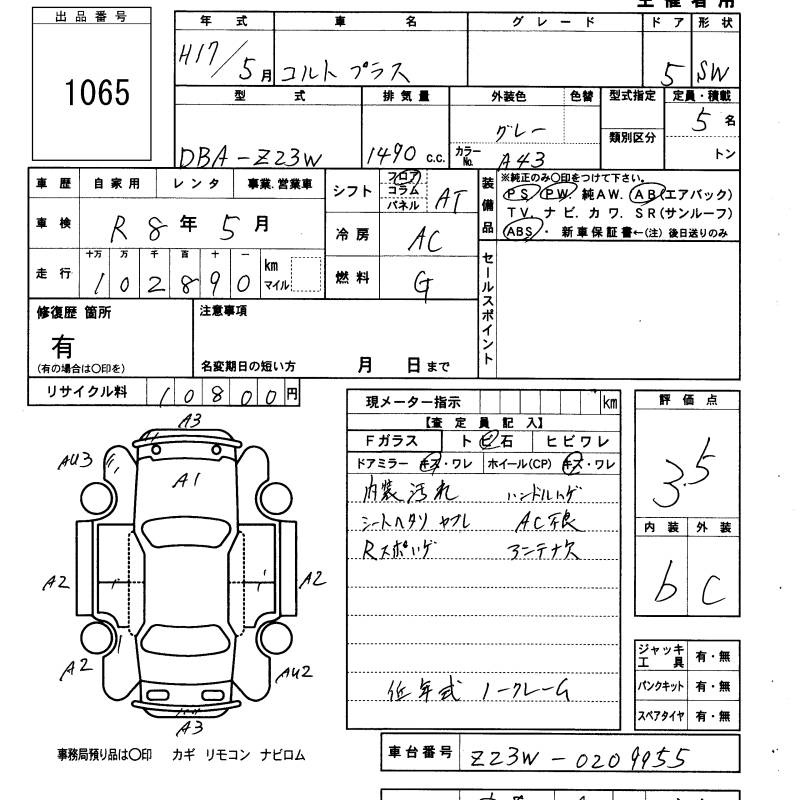 出品番号
1065
年式 車名 グレード ドア 形状
H17/5月 コルト プラス 5 SW
型式 排気量 外装色 色替 型式指定 定員・積載
グレー 類別区分 5名
DBA-Z23W 1490 c.c. カラーNo. A43 トン
車歴 自家用 レンタ 事業.営業車
車検 R8年5月
走行 十万 万 千 百 十 一
102890 km マイル
シフト フロア コラム パネル AT
冷房 AC
燃料 G
装備品
※純正のみ〇印をつけて下さい。
PS. PW. 純AW. AB(エアバック)
TV. ナビ. カワ. SR(サンルーフ)
ABS・ 新車保証書←(注) 後日送りのみ
セールスポイント
修復歴 箇所
有
(有の場合は〇印を)
注意事項
名変期日の短い方 月 日まで
リサイクル料 10800円
現メーター指示 km
【査定員記入】
Fガラス ト ビ 石 ヒビワレ
ドアミラー キズ・ワレ ホイール(CP) キズ・ワレ
内装汚れ ハンドルハゲ
シートヘタリ ヤブレ AC不良
Rスポハゲ アンテナ欠
低年式 ノークレーム
評価点
3.5
内装 外装
b C
ジャッキ工具 有・無
パンクキット 有・無
スペアタイヤ 有・無
A3
AU3
A1
A2
A2
A2
AU2
A3
事務局預り品は〇印 カギ リモコン ナビロム
車台番号 Z23W-0209955